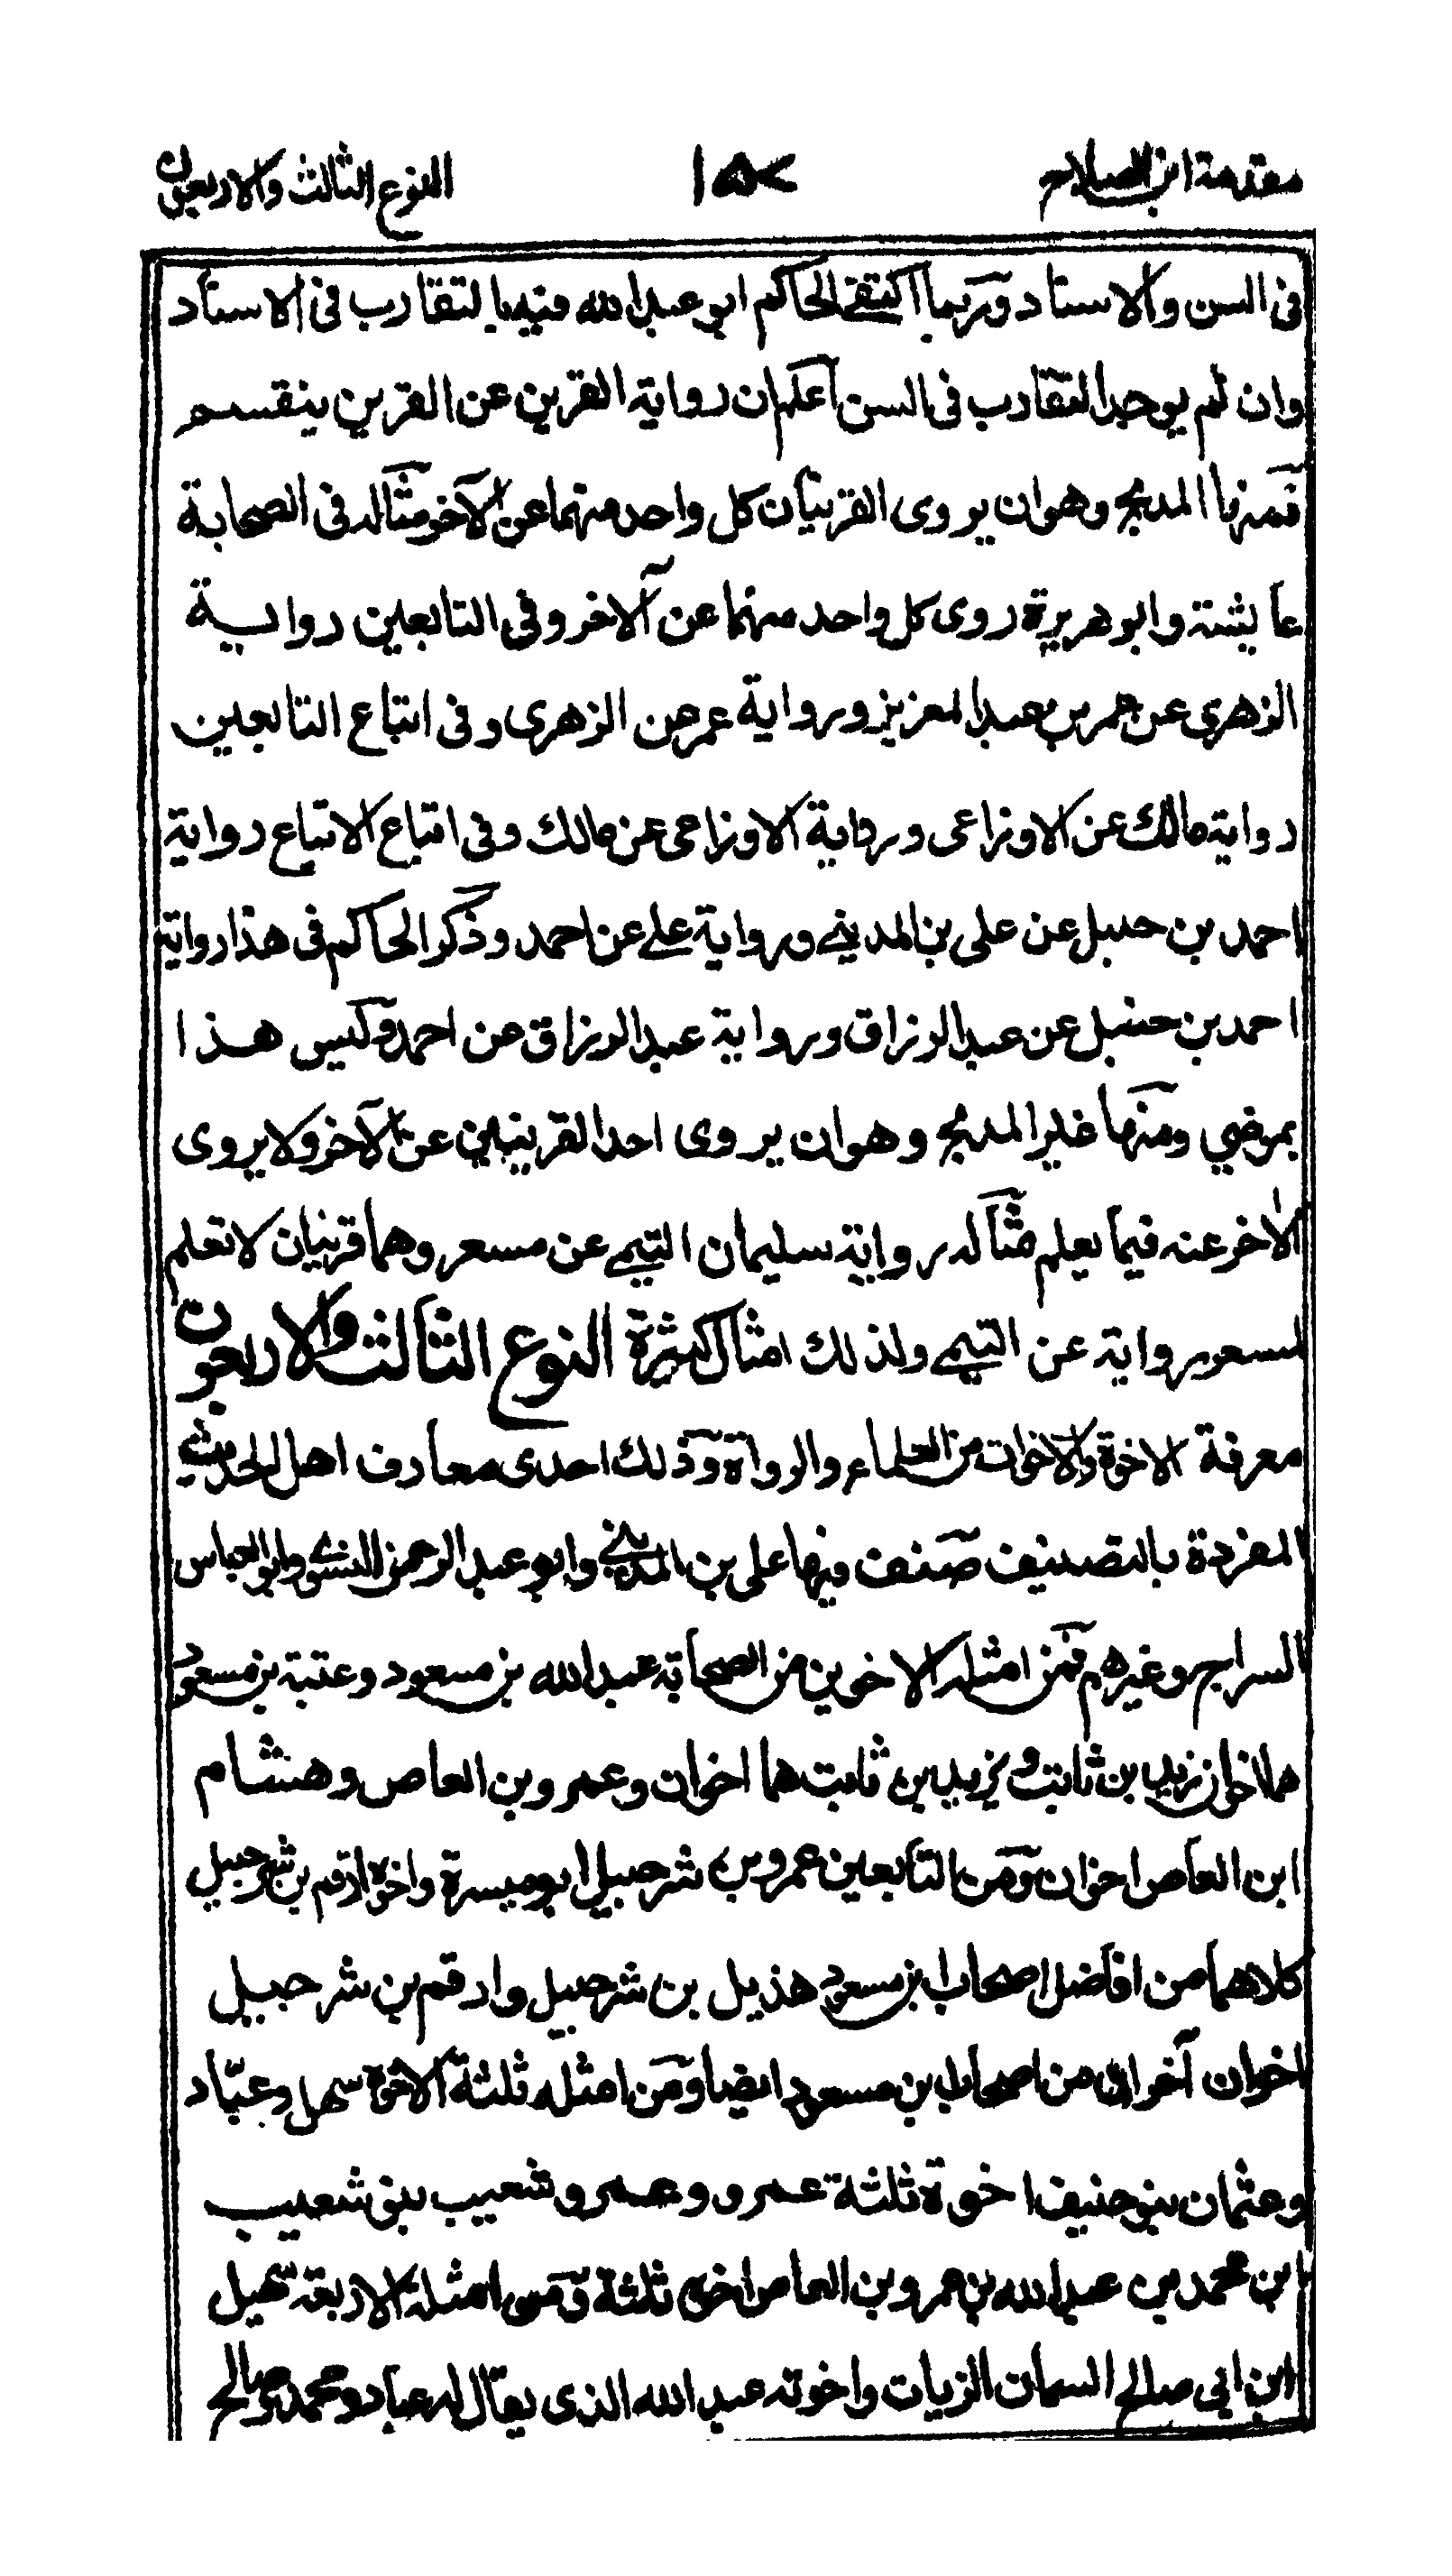 مقدمة ابن الصلاح ١٥٧ النوع الثالث والاربعون
فى السن والاسناد وربما اكتفى الحاكم ابو عبد الله فيه بالتقارب فى الاسناد
وان لم يوجد التقارب فى السن اعلم ان رواية القرين عن القرين ينقسم
فمنها المدبج وهو ان يروى القرينان كل واحد منهما عن الآخر مثاله فى الصحابة
عايشة وابو هريرة روى كل واحد منهما عن الآخر وفى التابعين رواية
الزهرى عن عمر بن عبد العزيز ورواية عمر عن الزهرى وفى اتباع التابعين
رواية مالك عن الاوزاعى ورواية الاوزاعى عن مالك وفى اتباع الاتباع رواية
احمد بن حنبل عن على بن المدينى ورواية على عن احمد وذكر الحاكم فى هذا رواية
احمد بن حنبل عن عبد الرزاق ورواية عبد الرزاق عن احمد وليس هذا
بمرضي ومنها غير المدبج وهو ان يروى احد القرينين عن الآخر ولا يروى
الآخر عنه فيما يعلم مثاله رواية سليمان التيمى عن مسعر وهما قرينان لا نعلم
لمسعر رواية عن التيمى ولذلك امثال كثيرة النوع الثالث والاربعون
معرفة الاخوة والاخوات من العلماء والرواة وذلك احدى معارف اهل الحديث
المفردة بالتصنيف صنف فيها على بن المدينى وابو عبد الرحمن النسوى وابو العباس
السراج وغيرهم فمن امثلة الاخوين من الصحابة عبد الله بن مسعود وعتبة بن مسعود
هما اخوان زيد بن ثابت ويزيد بن ثابت هما اخوان وعمرو بن العاص وهشام
ابن العاص اخوان ومن التابعين عمرو بن شرحبيل ابو ميسرة واخوه ارقم بن شرحبيل
كلاهما من افاضل اصحاب ابن مسعود هذيل بن شرحبيل وارقم بن شرحبيل
اخوان آخران من اصحاب بن مسعود ايضا ومن امثلة ثلثة الاخوة سهل وعبّاد
وعثمان بنو حنيف اخوة ثلثة عمرو وعمر وشعيب بنو شعيب
بن محمد بن عبد الله بن عمرو بن العاص اخوة ثلثة ومن امثلة الاربعة سهيل
ابن ابى صالح السمان الزيات واخوته عبد الله الذى يقال له عباد ومحمد وصالح